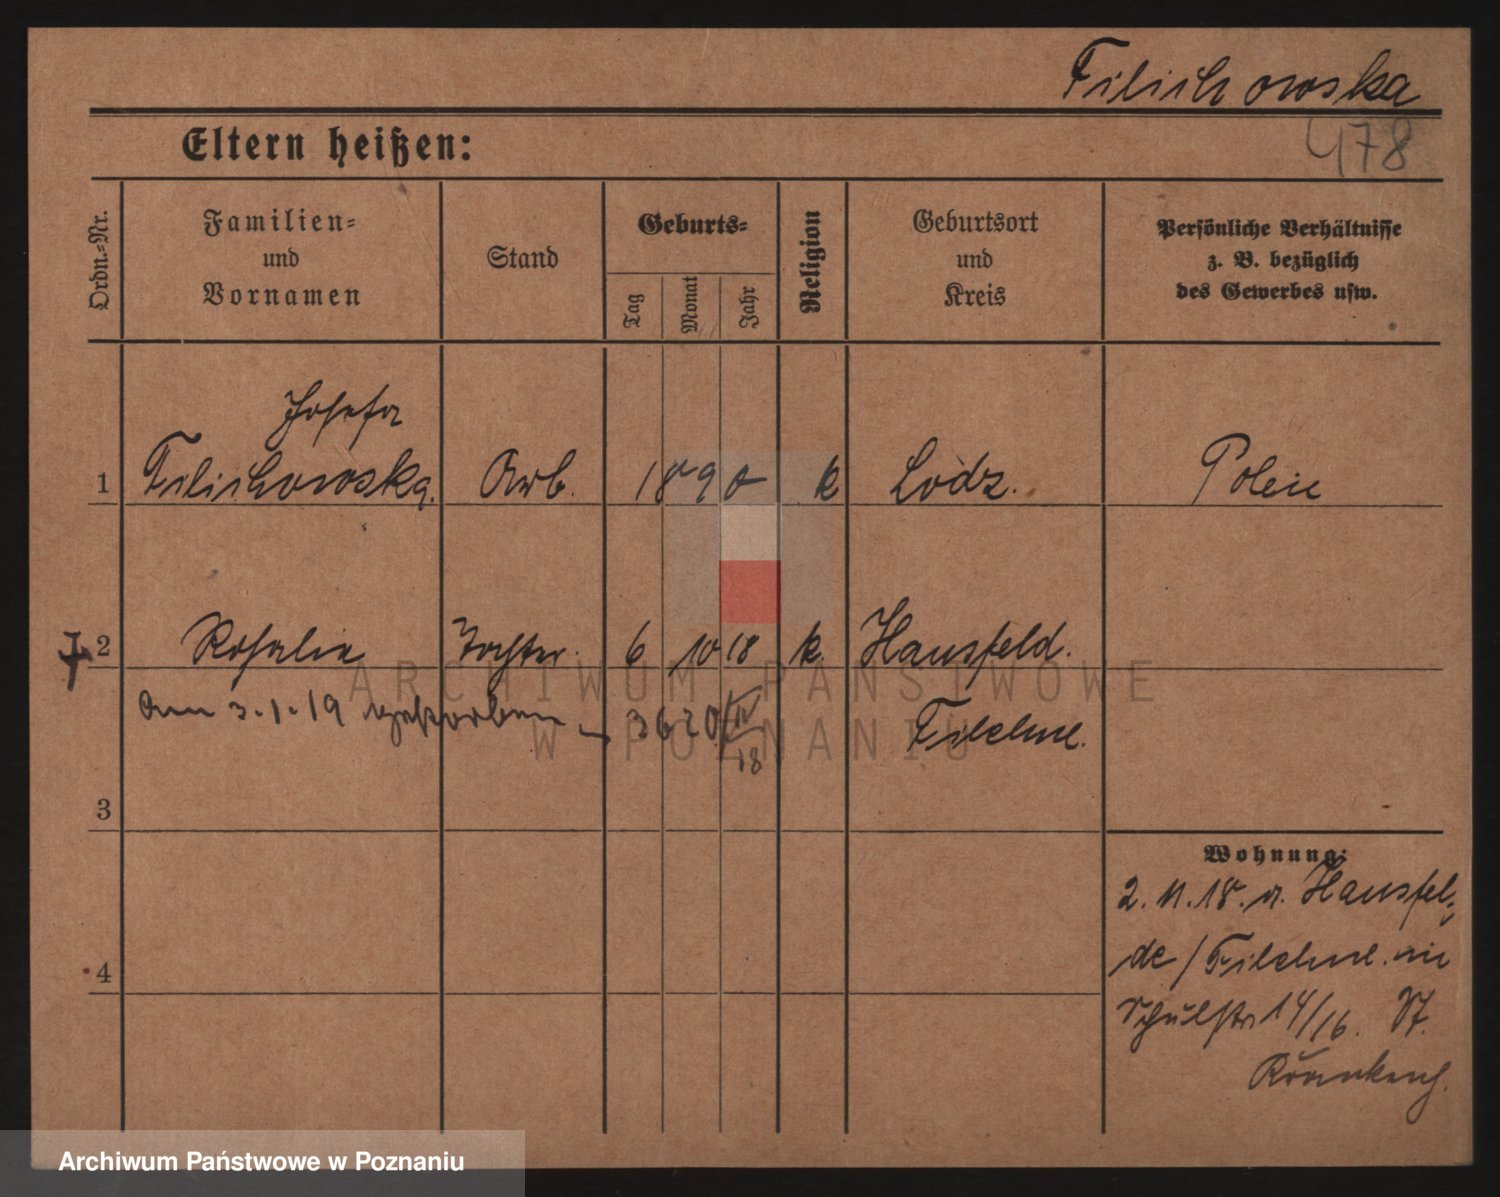 Filichowska
478
Eltern heißen:
Ordn.-Nr.
Familien-
und
Vornamen
Stand
Geburts-
Tag
Monat
Jahr
Religion
Geburtsort
und
Kreis
Persönliche Verhältnisse
z. B. bezüglich
des Gewerbes usw.
Josefa
1 Filichowska. Arb. 1890 k Lodz. Polin
† 2 Rosalie Tochter. 6 10 18 k. Hausfeld.
Am 3.1.19 gestorben 3620 IV
Filehne.
18
3
Wohnung:
2. 11. 18. a. Hausfel-
4
de / Filehne. in
Schulstr 14/16. St.
Krankenh.
ARCHIWUM PAŃSTWOWE
W POZNANIU
Archiwum Państwowe w Poznaniu